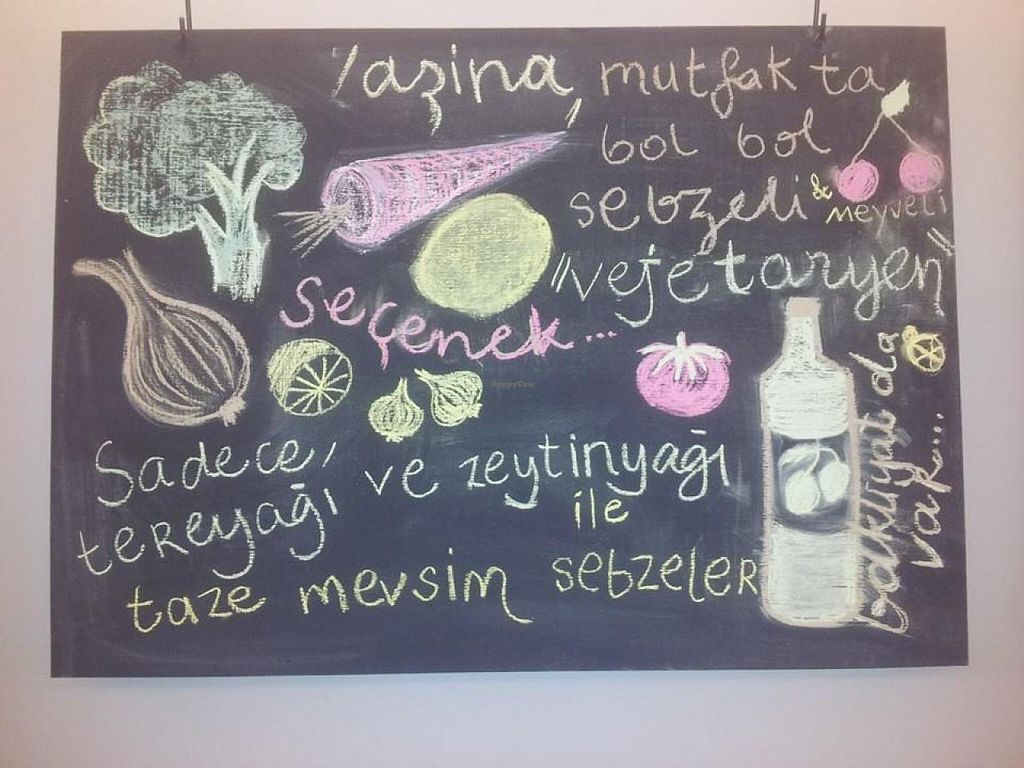 mutfak ta
bol bol
sebzeli & meyveli
"vejetaryen"
seçenek...
Sadece,
tereyağı ve zeytinyağı
ile
taze mevsim sebzeler
bakliyat da
var...
HappyCow